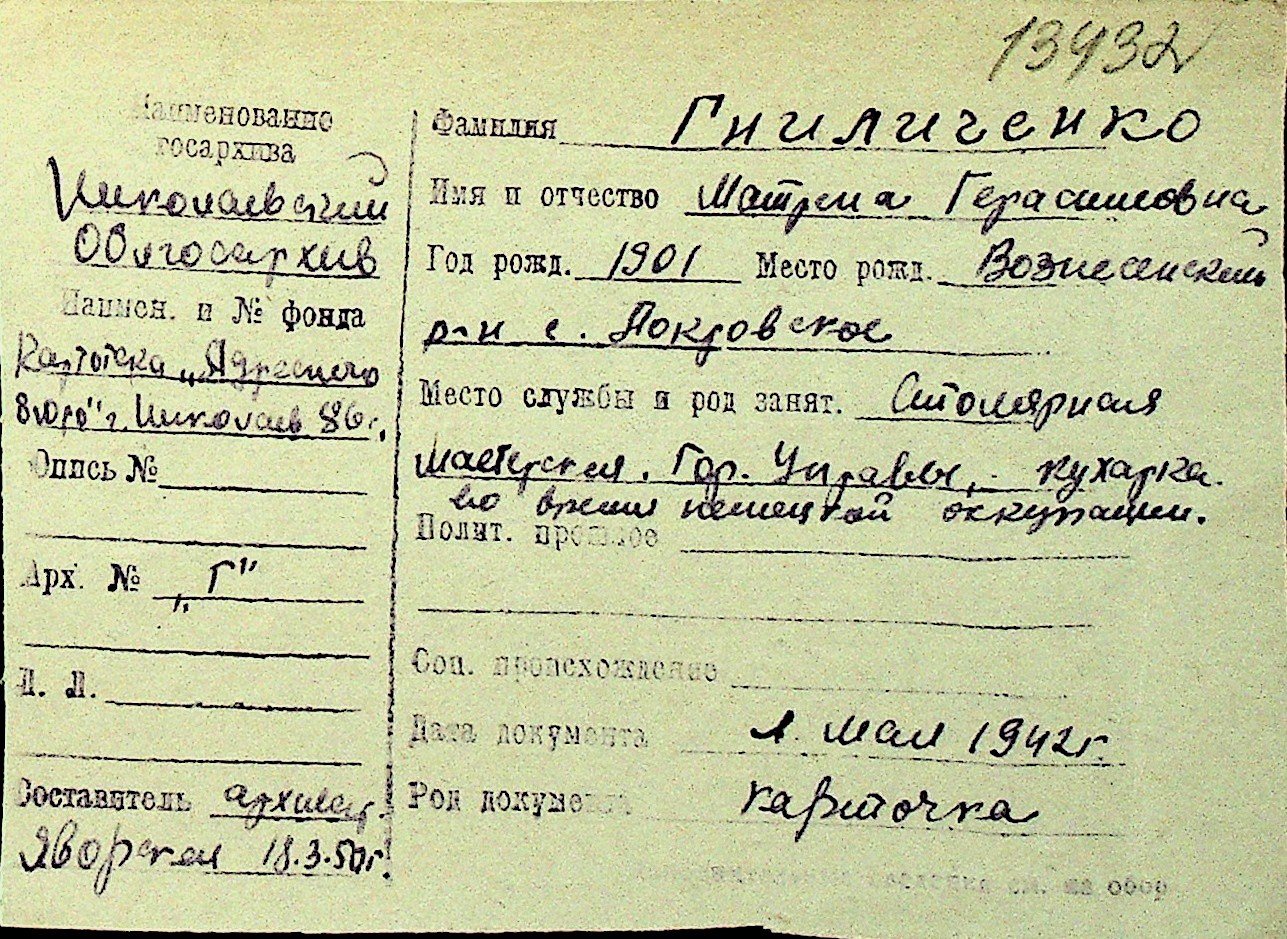 13432
Наименование
госархива
Николаевский
Облгосархив
Наимен. и № фонда
Картотека „Адресного
бюро" г. Николаев 86г.
Опись №
Арх. № „Г"
Л. Л.
Составитель архивар.
Яворская 18.3.50г.
Фамилия Гниличенко
Имя и отчество Матрена Герасимовна
Год рожд. 1901 Место рожд. Вознесенский
р-н с. Покровское
Место службы и род занят. Столярная
мастерская. Гор. Управы, кухарка.
во время немецкой оккупации.
Полит. прошлое
Соц. происхождение
Дата документа 1. мая 1942г.
Род документа карточка
см. на обор